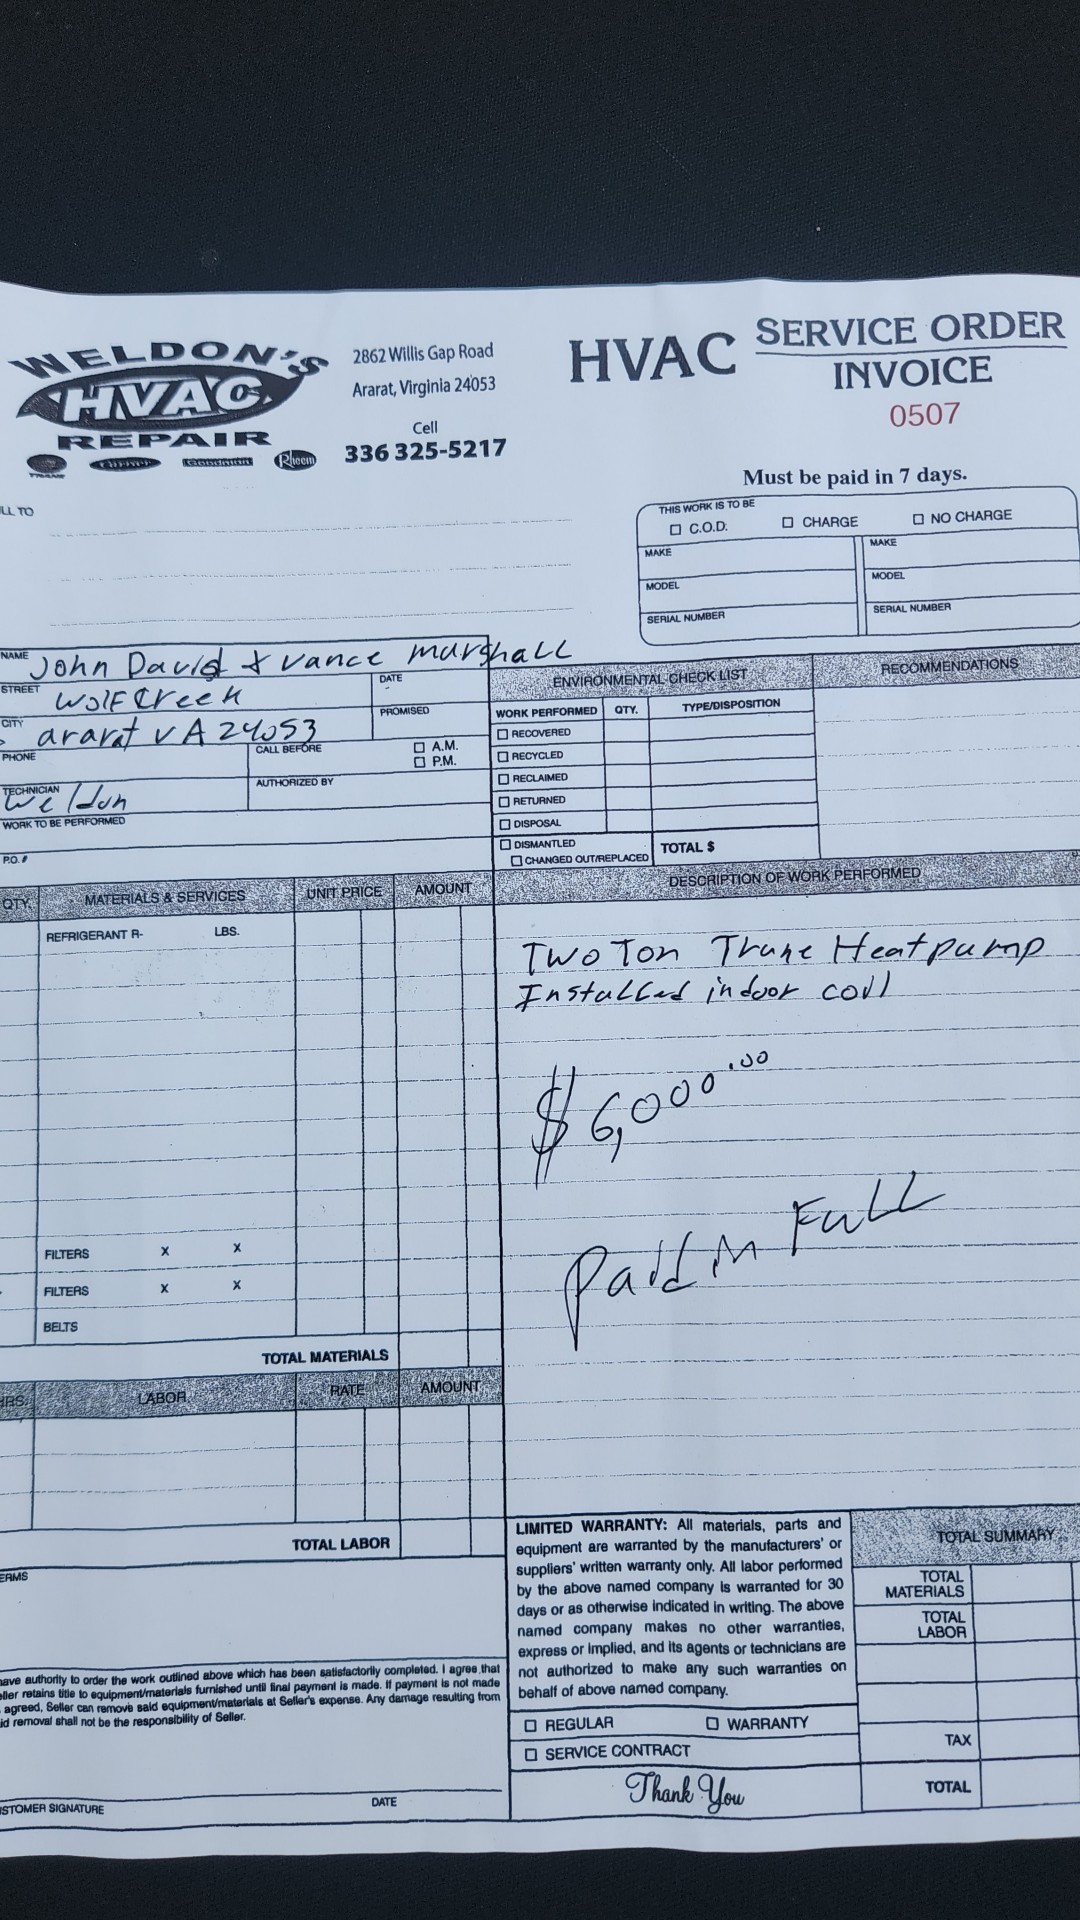 WELDON'S
HVAC
REPAIR
Rheem
2862 Willis Gap Road
Ararat, Virginia 24053
Cell
336 325-5217
HVAC SERVICE ORDER
INVOICE
0507
Must be paid in 7 days.
LL TO
THIS WORK IS TO BE
C.O.D. CHARGE NO CHARGE
MAKE MAKE
MODEL MODEL
SERIAL NUMBER SERIAL NUMBER
NAME John David & Vance Marshall
STREET Wolf Creek
DATE
CITY ararat VA 24053
PROMISED
PHONE
CALL BEFORE A.M.
P.M.
TECHNICIAN Weldon
AUTHORIZED BY
WORK TO BE PERFORMED
P.O. #
ENVIRONMENTAL CHECK LIST
WORK PERFORMED QTY. TYPE/DISPOSITION
RECOVERED
RECYCLED
RECLAIMED
RETURNED
DISPOSAL
DISMANTLED
CHANGED OUT/REPLACED
TOTAL $
RECOMMENDATIONS
QTY. MATERIALS & SERVICES UNIT PRICE AMOUNT
REFRIGERANT R- LBS.
FILTERS X X
FILTERS X X
BELTS
TOTAL MATERIALS
HRS. LABOR RATE AMOUNT
TOTAL LABOR
DESCRIPTION OF WORK PERFORMED
Two Ton Trane Heatpump
Installed indoor coil
$6,000.00
Paid in Full
ERMS
have authority to order the work outlined above which has been satisfactorily completed. I agree that
ller retains title to equipment/materials furnished until final payment is made. If payment is not made
agreed, Seller can remove said equipment/materials at Seller's expense. Any damage resulting from
id removal shall not be the responsibility of Seller.
STOMER SIGNATURE DATE
LIMITED WARRANTY: All materials, parts and
equipment are warranted by the manufacturers' or
suppliers' written warranty only. All labor performed
by the above named company is warranted for 30
days or as otherwise indicated in writing. The above
named company makes no other warranties,
express or implied, and its agents or technicians are
not authorized to make any such warranties on
behalf of above named company.
REGULAR WARRANTY
SERVICE CONTRACT
Thank You
TOTAL SUMMARY
TOTAL
MATERIALS
TOTAL
LABOR
TAX
TOTAL